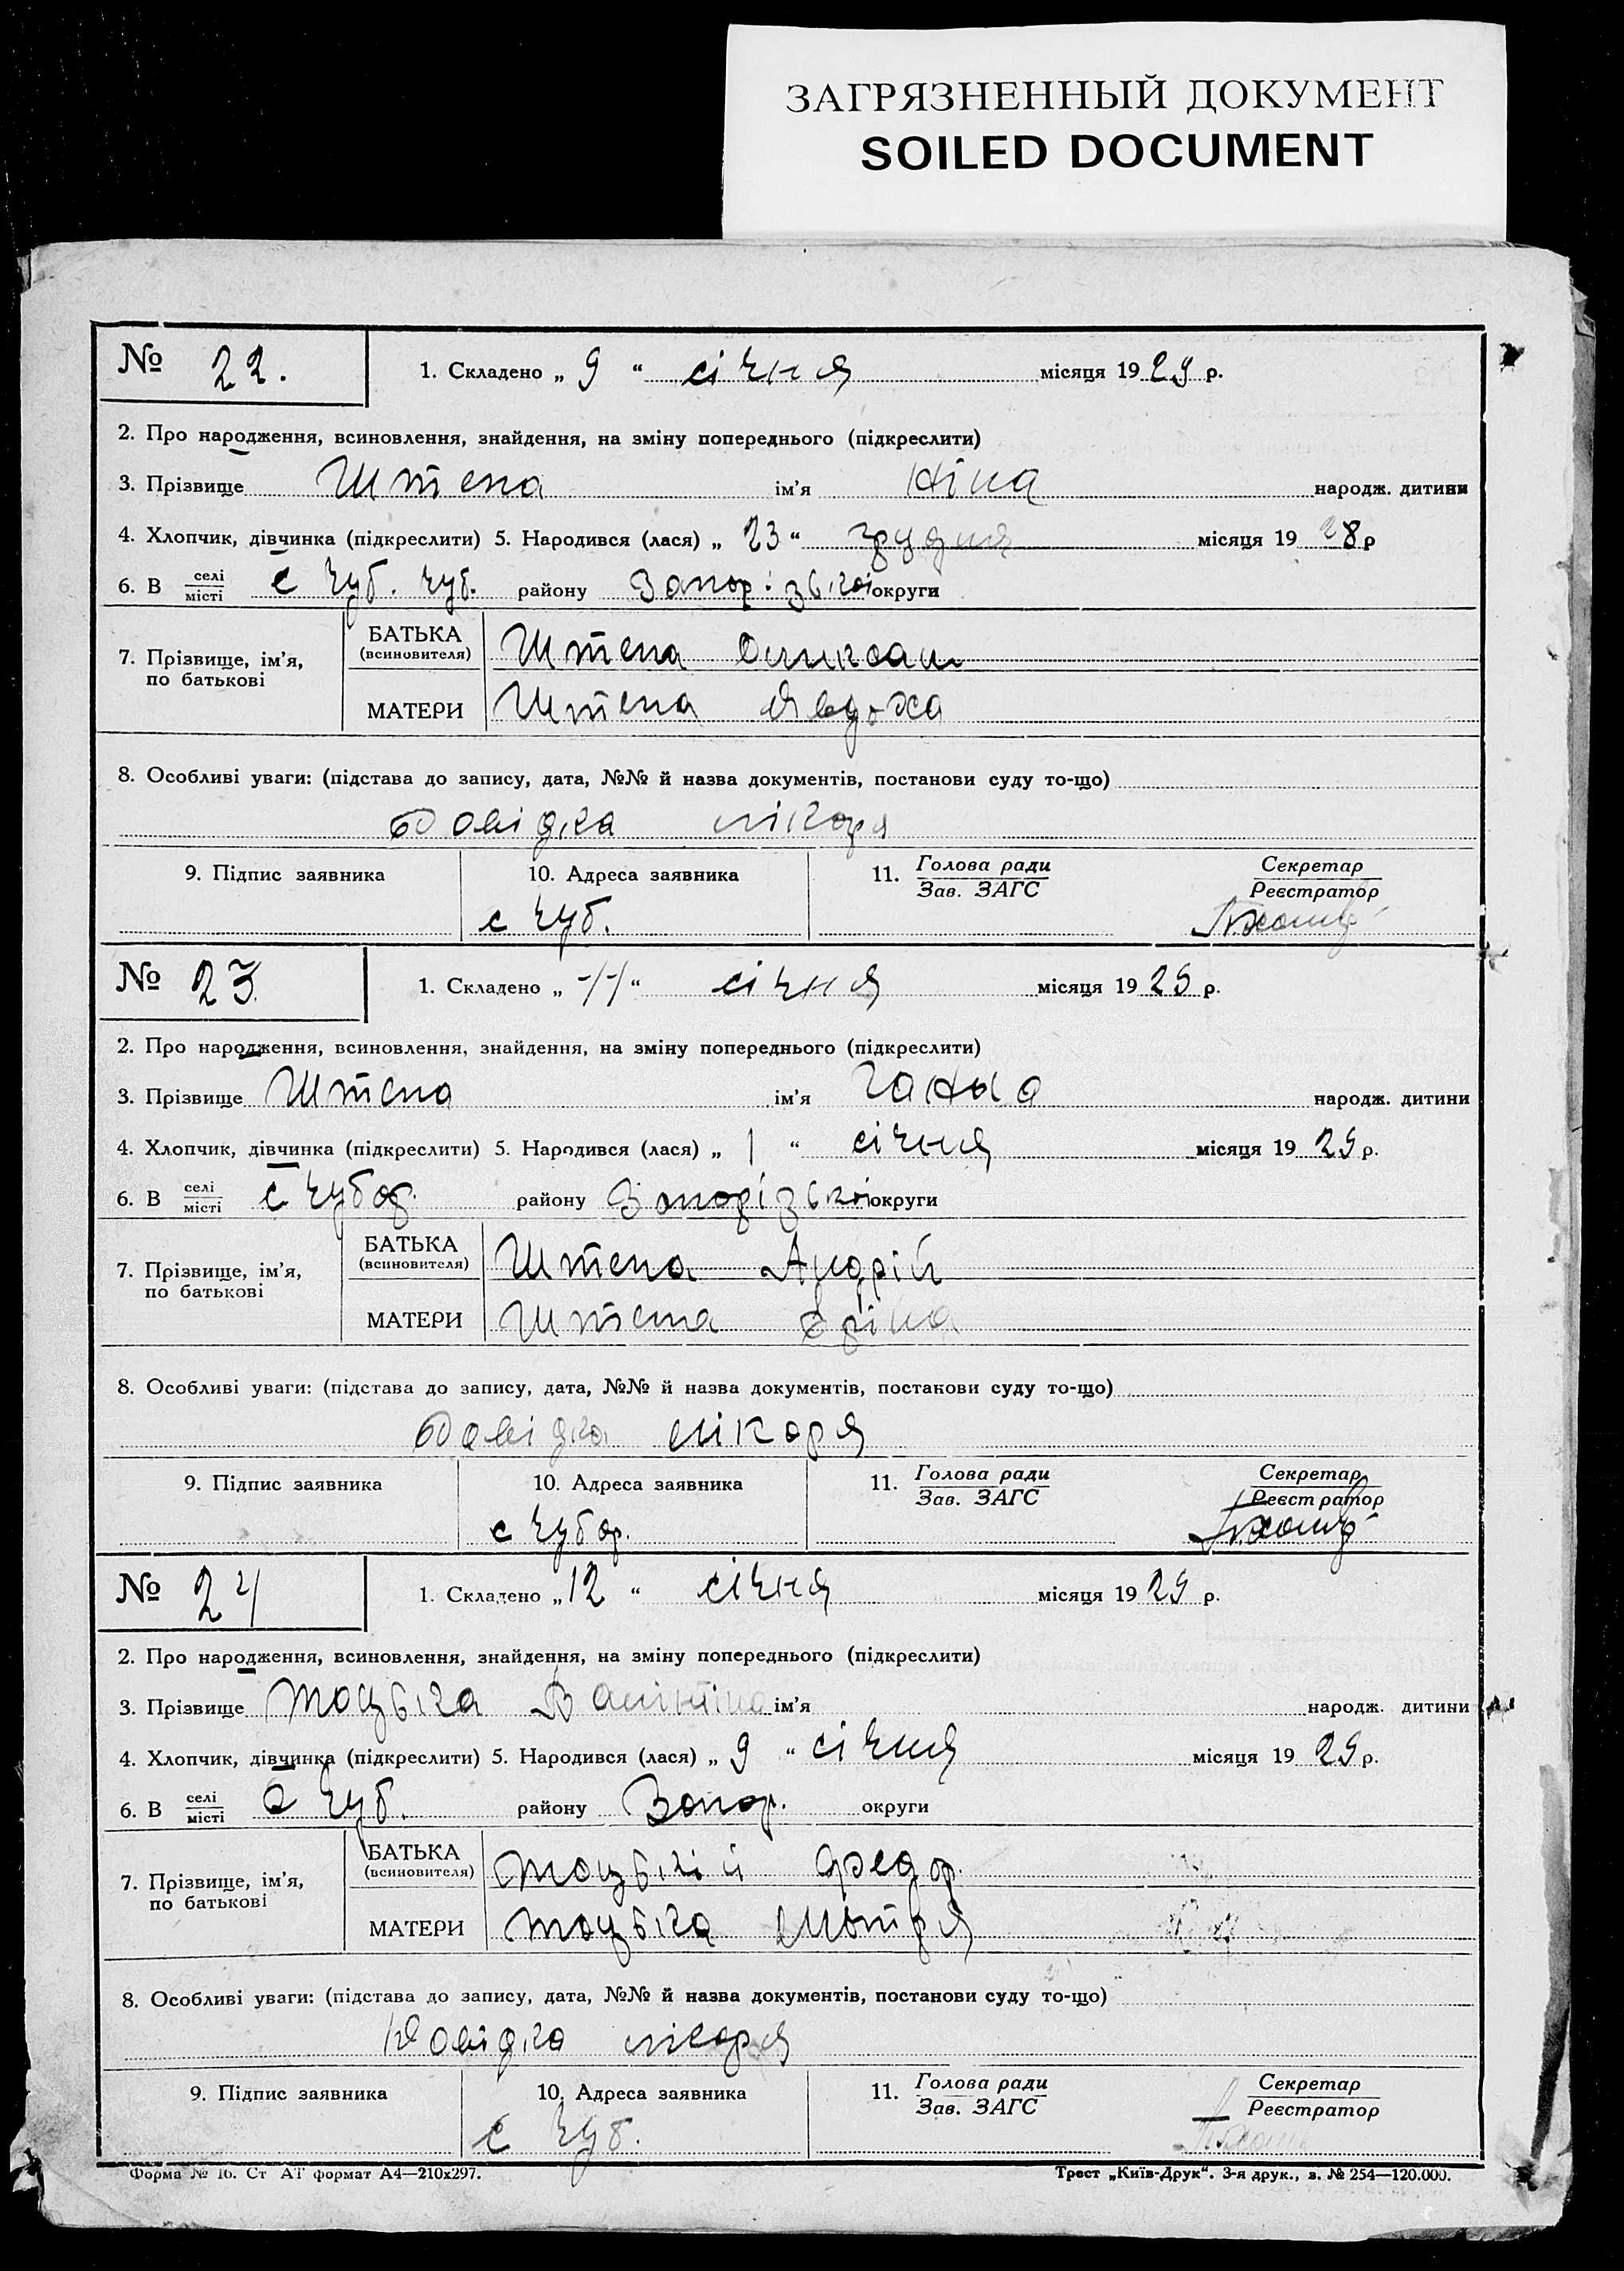 ЗАГРЯЗНЕННЫЙ ДОКУМЕНТ
SOILED DOCUMENT
№ 22. 1. Складено „ 9 “ січня місяця 19 29 р.
2. Про народження, всиновлення, знайдення, на зміну попереднього (підкреслити)
3. Прізвище Штепа ім’я Ніна народж. дитини
4. Хлопчик, дівчинка (підкреслити) 5. Народився (лася) „ 23 “ грудня місяця 19 28 р
6. В селі/місті с Чуб. Чуб. району Запорізької округи
7. Прізвище, ім’я, по батькові
БАТЬКА (всиновителя) Штепа
МАТЕРИ Штепа Явдоха
8. Особливі уваги: (підстава до запису, дата, №№ й назва документів, постанови суду то-що)
Довідка лікаря
9. Підпис заявника 10. Адреса заявника 11. Голова ради/Зав. ЗАГС Секретар/Реєстратор
с Чуб.
№ 23. 1. Складено „ -//- “ січня місяця 19 29 р.
2. Про народження, всиновлення, знайдення, на зміну попереднього (підкреслити)
3. Прізвище Штепа ім’я Ганна народж. дитини
4. Хлопчик, дівчинка (підкреслити) 5. Народився (лася) „ 1 “ січня місяця 19 29 р.
6. В селі/місті с Чубар. району Запорізької округи
7. Прізвище, ім’я, по батькові
БАТЬКА (всиновителя) Штепа Андрій
МАТЕРИ Штепа
8. Особливі уваги: (підстава до запису, дата, №№ й назва документів, постанови суду то-що)
Довідка лікаря
9. Підпис заявника 10. Адреса заявника 11. Голова ради/Зав. ЗАГС Секретар/Реєстратор
с Чубар.
№ 24 1. Складено „ 12 “ січня місяця 19 29 р.
2. Про народження, всиновлення, знайдення, на зміну попереднього (підкреслити)
3. Прізвище Тоцька Валінтіна ім’я народж. дитини
4. Хлопчик, дівчинка (підкреслити) 5. Народився (лася) „ 9 “ січня місяця 19 29 р.
6. В селі/місті с Чуб. району Запор. округи
7. Прізвище, ім’я, по батькові
БАТЬКА (всиновителя) Тоцький Федор
МАТЕРИ Тоцька Мотря
8. Особливі уваги: (підстава до запису, дата, №№ й назва документів, постанови суду то-що)
Довідка лікаря
9. Підпис заявника 10. Адреса заявника 11. Голова ради/Зав. ЗАГС Секретар/Реєстратор
с Чуб.
Форма № 16. Ст АТ формат А4—210х297. Трест „Київ-Друк“. 3-я друк., з. № 254—120.000.